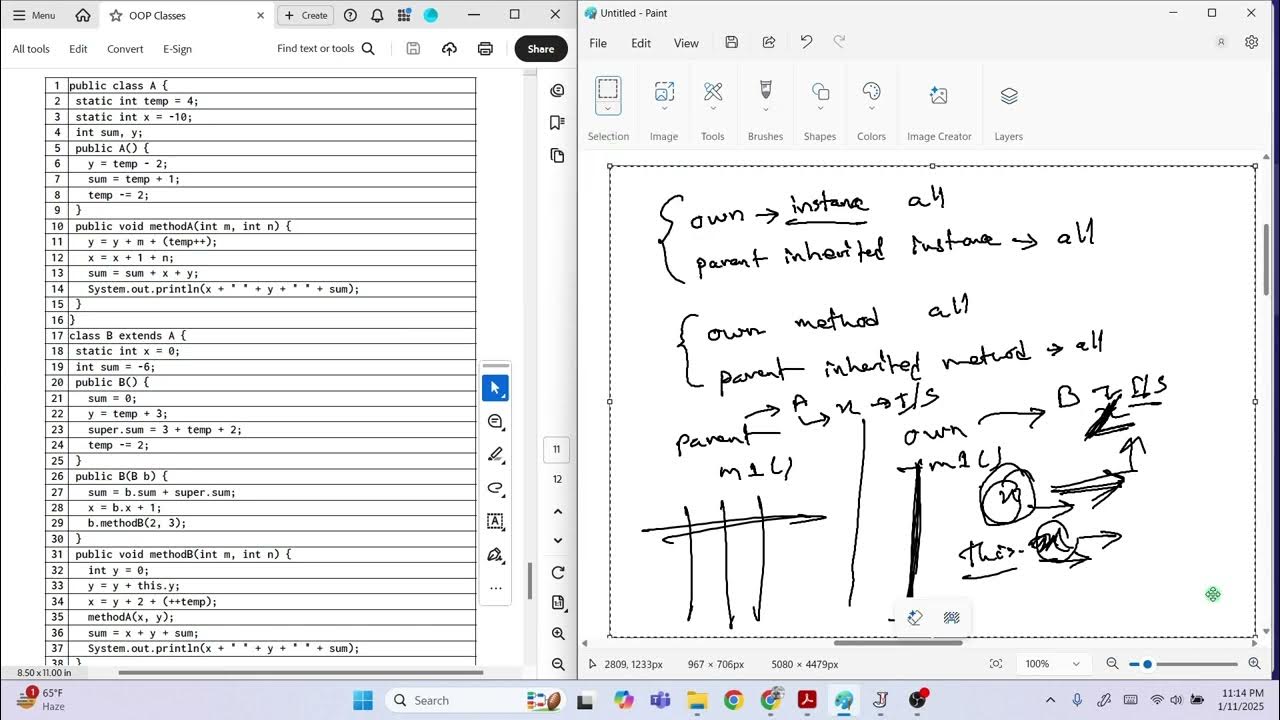 Menu
OOP Classes
Create
All tools Edit Convert E-Sign
Find text or tools
Share
1 public class A {
2 static int temp = 4;
3 static int x = -10;
4 int sum, y;
5 public A() {
6 y = temp - 2;
7 sum = temp + 1;
8 temp -= 2;
9 }
10 public void methodA(int m, int n) {
11 y = y + m + (temp++);
12 x = x + 1 + n;
13 sum = sum + x + y;
14 System.out.println(x + " " + y + " " + sum);
15 }
16 }
17 class B extends A {
18 static int x = 0;
19 int sum = -6;
20 public B() {
21 sum = 0;
22 y = temp + 3;
23 super.sum = 3 + temp + 2;
24 temp -= 2;
25 }
26 public B(B b) {
27 sum = b.sum + super.sum;
28 x = b.x + 1;
29 b.methodB(2, 3);
30 }
31 public void methodB(int m, int n) {
32 int y = 0;
33 y = y + this.y;
34 x = y + 2 + (++temp);
35 methodA(x, y);
36 sum = x + y + sum;
37 System.out.println(x + " " + y + " " + sum);
38 }
11
12
8.50 x 11.00 in
Untitled - Paint
File Edit View
Selection Image Tools Brushes Shapes Colors Image Creator Layers
own → instance all
parent inherited instance → all
own method all
parent inherited method → all
parent → A → x → I/S
own → B x I/S
m1()
m1()
x
this.
2809, 1233px
967 × 706px
5080 × 4479px
100%
1
65°F
Haze
Search
1:14 PM
1/11/2025